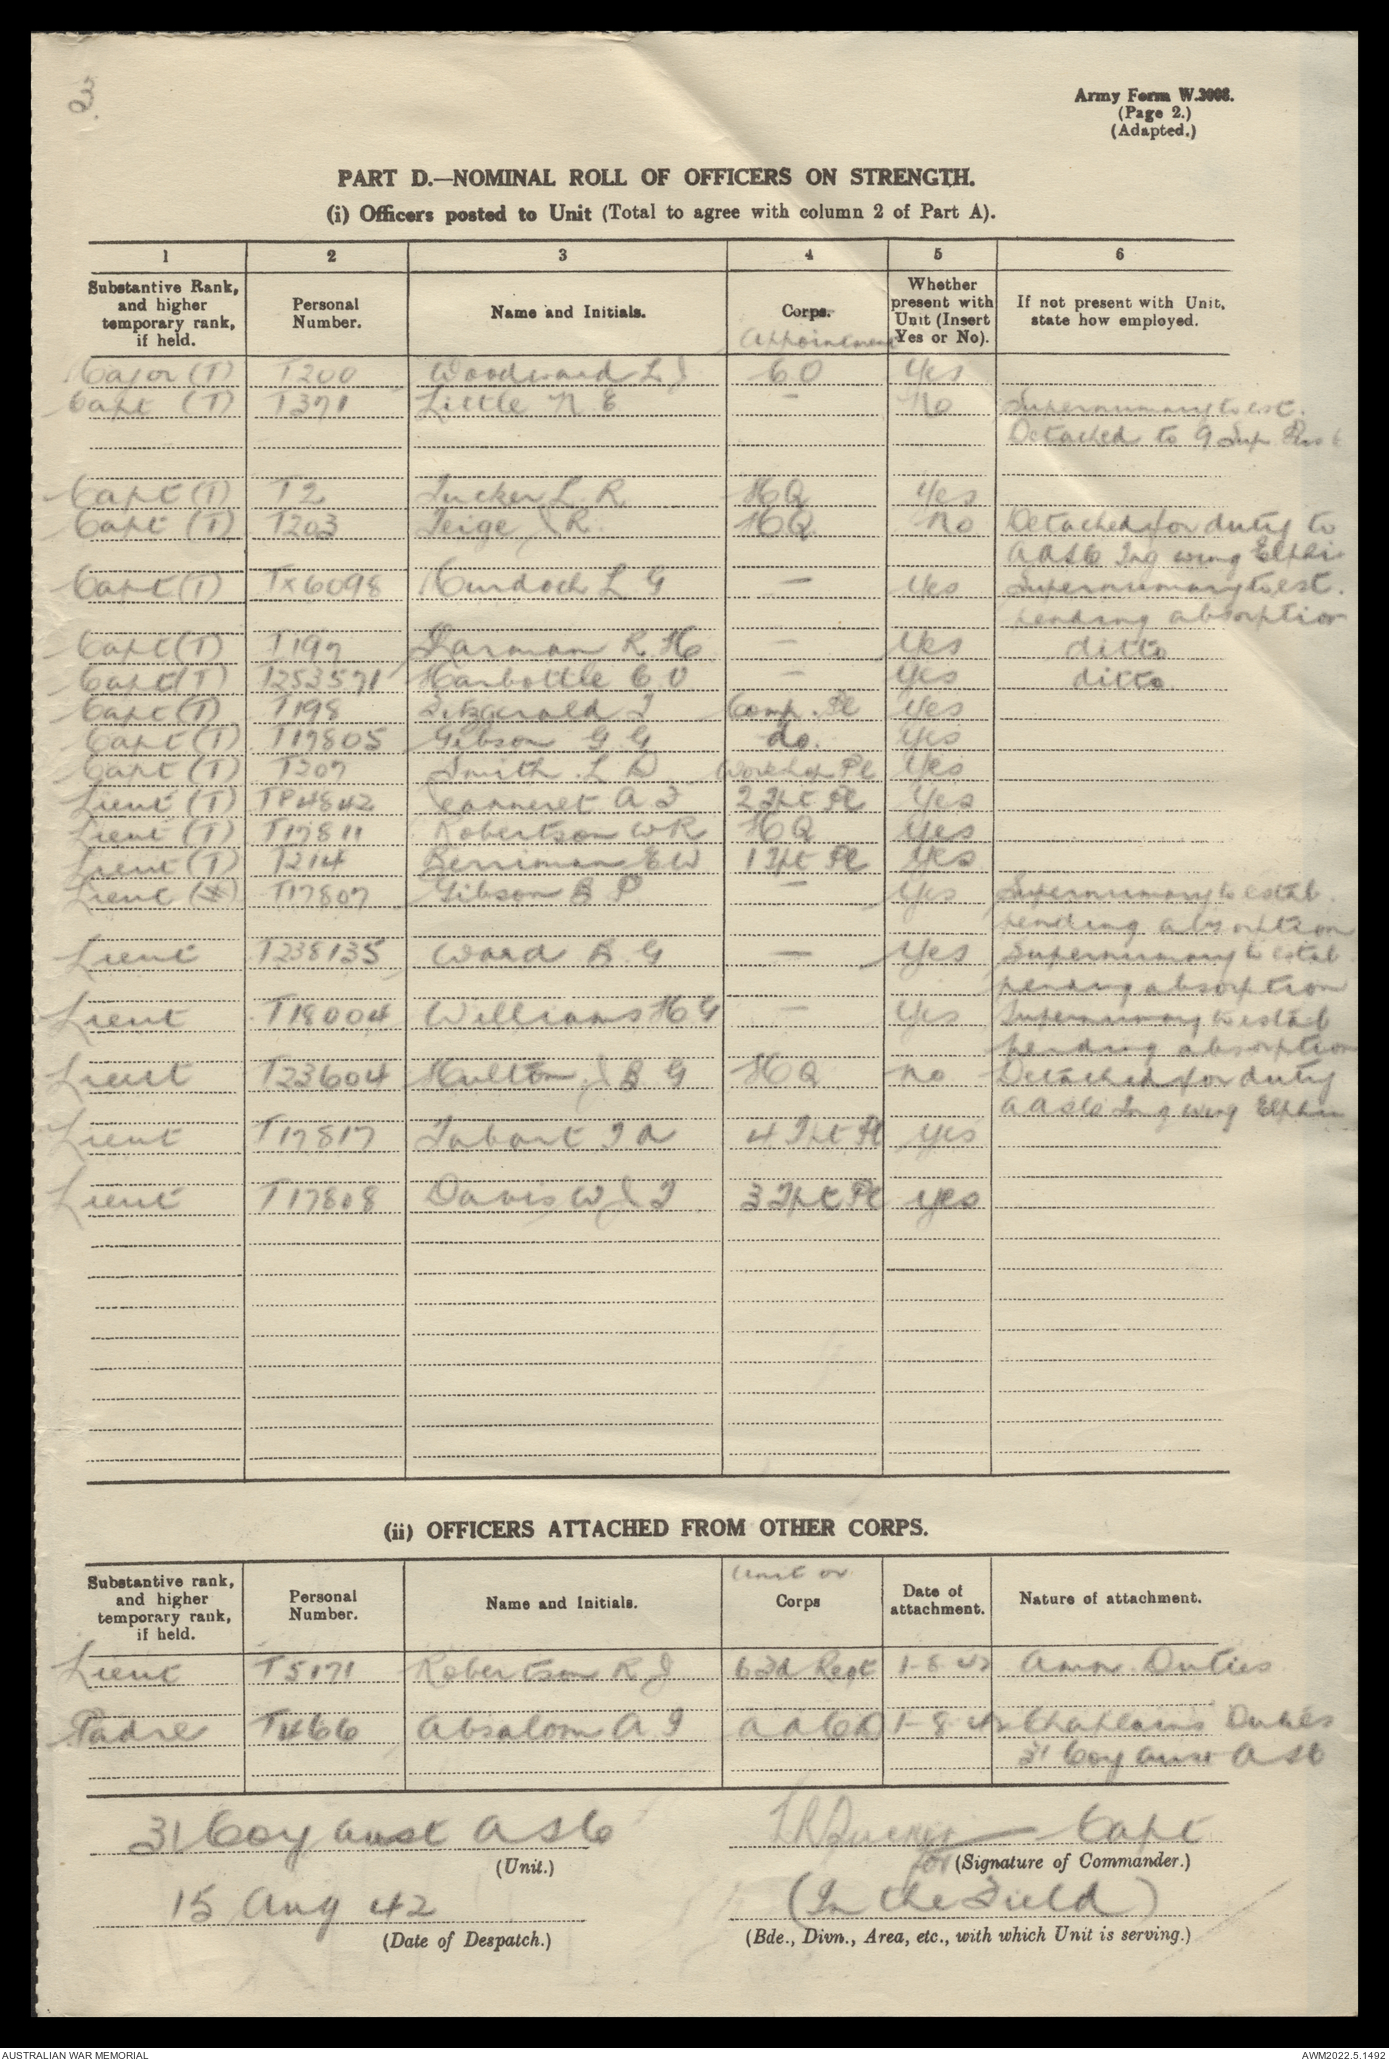 2.
Army Form W.3008.
(Page 2.)
(Adapted.)
PART D.—NOMINAL ROLL OF OFFICERS ON STRENGTH.
(i) Officers posted to Unit (Total to agree with column 2 of Part A).
1 2 3 4 5 6
Substantive Rank, and higher temporary rank, if held. Personal Number. Name and Initials. Corps. Appointment Whether present with Unit (Insert Yes or No). If not present with Unit, state how employed.
Major (T) T200 Woodward L J CO Yes
Capt (T) T371 Little N E — No Supernumary to est.
Detached to 9 Sup
Capt (T) T2 Tucker L R HQ Yes
Capt (T) T203 Teige J R HQ No Detached for duty to
AASC Tng wing Elphin
Capt (T) TX6098 Murdoch L G — Yes Supernumary to est.
pending absorption
Capt (T) T197 Harman R H — Yes ditto
Capt (T) T253571 Harbottle C V — Yes ditto
Capt (T) T198 Fitzgerald T Comp. Pl Yes
Capt (T) T17805 Gibson G G do. Yes
Capt (T) T207 Smith L D Workshop Pl Yes
Lieut (T) TP4842 Jeanneret A F 2 Tpt Pl Yes
Lieut (T) T17811 Robertson W R HQ Yes
Lieut (T) T214 Berriman E W 1 Tpt Pl Yes
Lieut T17807 Gibson B P — Yes Supernumary to estab.
pending absorption
Lieut T238135 Ward B G — Yes Supernumary to estab.
pending absorption
Lieut T18004 Williams H G — Yes Supernumary to estab
pending absorption
Lieut T23604 Hulton J B G HQ No Detached for duty
AASC Tng wing Elphin
Lieut T17817 Tabart T A 4 Tpt Pl Yes
Lieut T17808 Davis W J T 3 Tpt Pl yes
(ii) OFFICERS ATTACHED FROM OTHER CORPS.
Substantive rank, and higher temporary rank, if held. Personal Number. Name and Initials. Unit or Corps Date of attachment. Nature of attachment.
Lieut T5171 Robertson R J 63d Regt 1-8-42 Amn. Duties
Padre T466 Absalom A T AACD 1-8-42 Chaplains Duties
31 Coy Aust ASC
31 Coy Aust ASC LRTucker Capt
(Unit.) for (Signature of Commander.)
15 Aug 42 (In the Field)
(Date of Despatch.) (Bde., Divn., Area, etc., with which Unit is serving.)
AUSTRALIAN WAR MEMORIAL AWM2022.5.1492